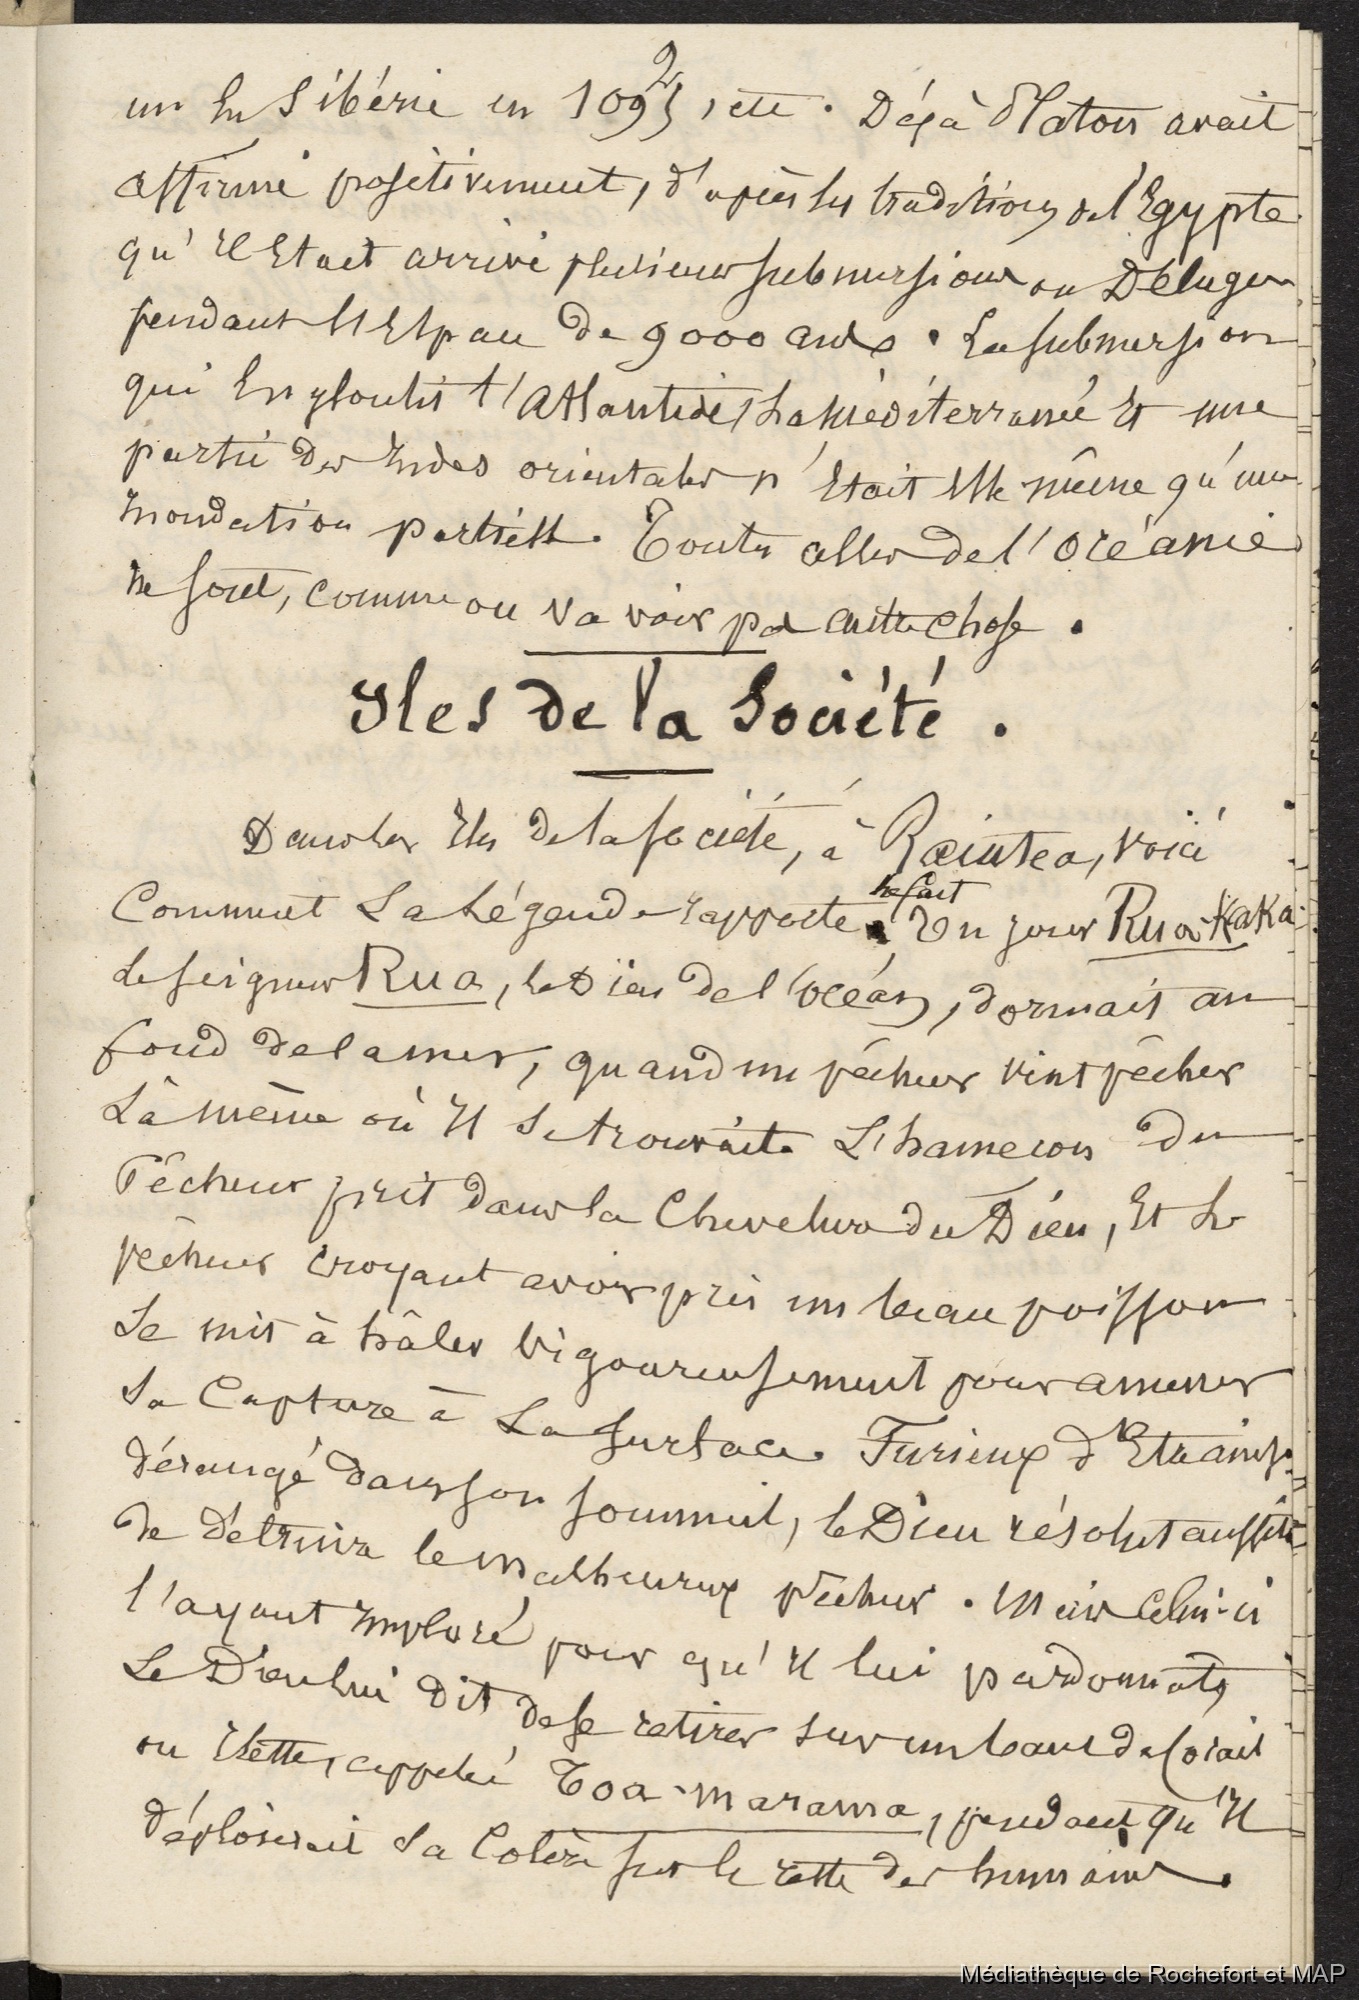 2
un En Sibérie en 1095, ett. Déjà Platon avait
affirmé positivement, d'après les traditions de l'Egypte
qu'il Etait arrivé plusieurs submersions ou Déluges
pendant l'Espace de 9000 ans. La submersion
qui Engloutit l'Atlantide, La Méditerranée Et une
partie des Indes orientales n'Etait Elle même qu'une
Inondation partielle. Toutes celles de l'Océanie
ne sont, comme on va voir pas autre chose.
Iles de la Société.
Dans les Iles de la Société, à Raiatea, voici
Comment La Légende rapporte le fait. Un jour Rua-Haka
le seigneur Rua, le Dieu de l'océan, dormait au
fond de la mer, quand un pêcheur vint pêcher
Là même où Il se trouvait. L'hameçon du
Pêcheur prit dans la Chevelure du Dieu, Et le
pêcheur croyant avoir pris un beau poisson
se mit à hâler vigoureusement pour amener
sa Capture à La surface. Furieux d'Etre ainsi
dérangé dans son sommeil, le Dieu résolut aussitôt
de détruire le malheureux pêcheur. Mais celui-ci
l'ayant Imploré pour qu'Il lui pardonnat,
Le Dieu lui dit de se retirer sur un banc de Corail
ou Ilette, appelé Toa-marama, pendant qu'Il
déploierait sa Colère sur le reste des humains.
Médiathèque de Rochefort et MAP